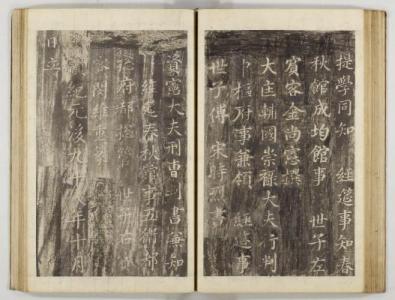 提學同知 經筵事知春
秋館成均館事 世子左
賓客金尙憲撰
大匡輔國崇祿大夫行判
中樞府事兼領 經筵事
世子傅 宋時烈書
資憲大夫刑曹判書兼知
經筵春秋館事五衛都
摠府都摠管 世子右賓
客閔維重篆
紀元後九 年十月
日立